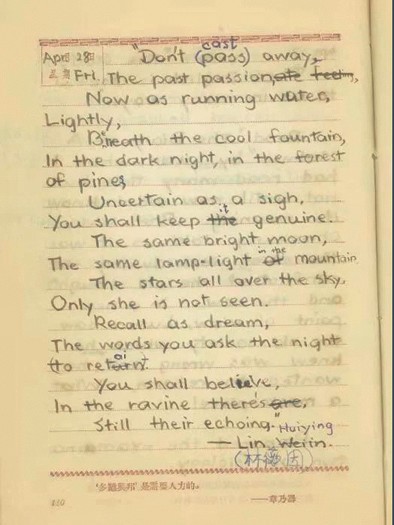 April 28日
五月 Fri.
"Don't (pass) cast away,
The past passion, ate feelin,
Now as running water,
Lightly,
Beneath the cool fountain,
In the dark night, in the forest
of pines,
Uncertain as a sigh,
You shall keep the it genuine.
The same bright moon,
The same lamp-light of in the mountain
The stars all over the sky,
Only she is not seen.
Recall as dream,
The words you ask the night
(to retain).
You shall believe,
In the ravine there's are,
Still their echoing."
— Lin Weiin. Huiying
(林徽因)
'多难兴邦'是需要人力的。
——章乃器
420